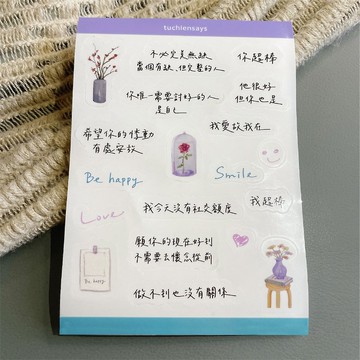 tuchlensays
不必完美無缺
當個有缺,但完整的人
你超棒
你唯一需要討好的人
是自己
他很好
但你也是
我愛故我在
希望你的悸動
有處安放
Be happy
Smile
Love
我今天沒有社交額度
我超棒
願你的現在好到
不需要去懷念從前
Be happy
做不到也沒有關係